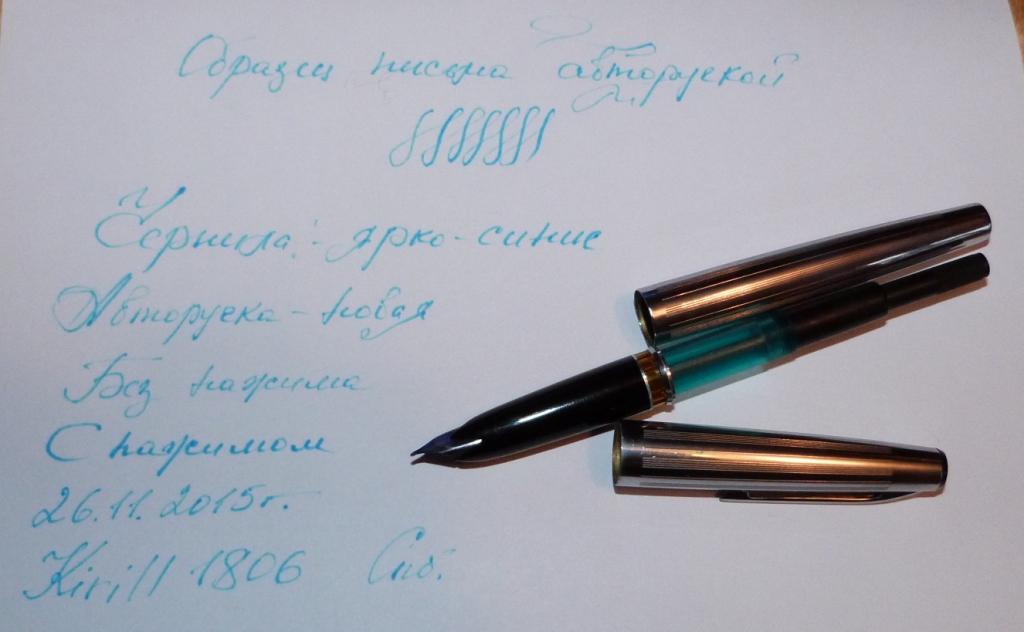 Образец письма авторучкой
Чернила: - ярко-синие
Авторучка - новая
Без нажима
С нажимом
26.11.2015г.
Kirill 1806 Спб.